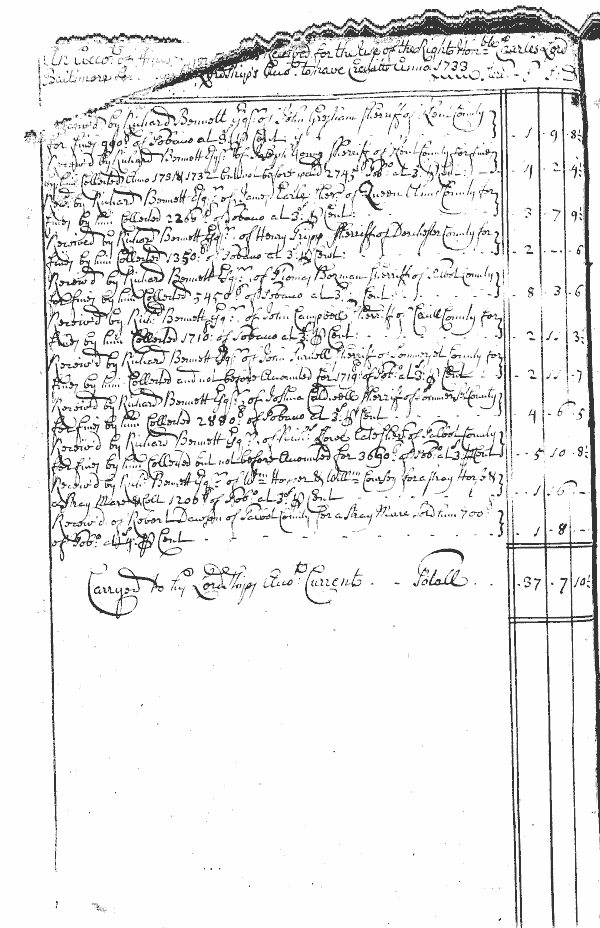 An Accot. of Fines Received for the Use of the Right Honble. Charles Lord
Baltimore for Lordships Accot. to have Credit Anno 1733
Receiv'd by Richard Bennett Esqr. of John Gresham Sherriff of Kent County
for fines 990 of Tobacco at 3 ⅌ Cent } 1 9 8
Receiv'd by Richard Bennett Esqr. of Joseph Young Sherriff of Kent County for fines
by him Collected Anno 1731 & 1732 but not before paid 2745 Tobo. at 3 ⅌ Cent } 4 2 4
Receiv'd by Richard Bennett Esqr. of James Earle Sherr. of Queen Anns County for
fines by him Collected 2265 of Tobacco at 3. ⅌ Cent } 3 7 9
Receiv'd by Richard Bennett Esqr. of Henry Tripp Sherriff of Dorchester County for
fines by him Collected 1350 of Tobacco at 3. ⅌ Cent } 2 - 6
Receiv'd by Richard Bennett Esqr. of Thomas Bozman Sherriff of Talbot County
for fines by him Collected 5450 of Tobacco at 3. ⅌ Cent } 8 3 6
Receiv'd by Richd. Bennett Esqr. of John Campbell Sherriff of County for
fines by him Collected 1710 of Tobacco at 3. ⅌ Cent } 2 11 3
Receiv'd by Richard Bennett Esqr. of John Sherriff of Sommerset County for
fines by him Collected and not before Accounted for 1719 of Tobo. at 3. ⅌ Cent } 2 11 7
Receiv'd by Richard Bennett Esqr. of Joshua Caldwell Sherriff of Sommerset County
for fines by him Collected 2880 of Tobacco at 3. ⅌ Cent } 4 6 5
Receiv'd by Richard Bennett Esqr. of late Sherr. of Talbot County
for fines by him Collected but not before Accounted for 3690 of Tobo. at 3. ⅌ Cent } 5 10 8
Receiv'd by Richd. Bennett Esqr. of Wm. Hopper & Willm. Coursey for a stray Horse &
a Stray Mare & Colt 1206 of Tobo. at 3. ⅌ Cent } 1 16
Receiv'd of Robert Dawson of Talbot County for a Stray Mare sold him 700
of Tobo. at 4. ⅌ Cent } 1 8
Carryed to his Lordships Accot. Current Totall 37 7 10